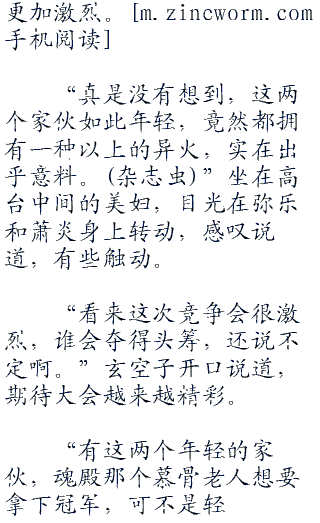 更加激烈。[m.zincworm.com
手机阅读]
“真是没有想到，这两
个家伙如此年轻，竟然都拥
有一种以上的异火，实在出
乎意料。(杂志虫)”坐在高
台中间的美妇，目光在弥乐
和萧炎身上转动，感叹说
道，有些触动。
“看来这次竞争会很激
烈，谁会夺得头筹，还说不
定啊。”玄空子开口说道，
期待大会越来越精彩。
“有这两个年轻的家
伙，魂殿那个慕骨老人想要
拿下冠军，可不是轻